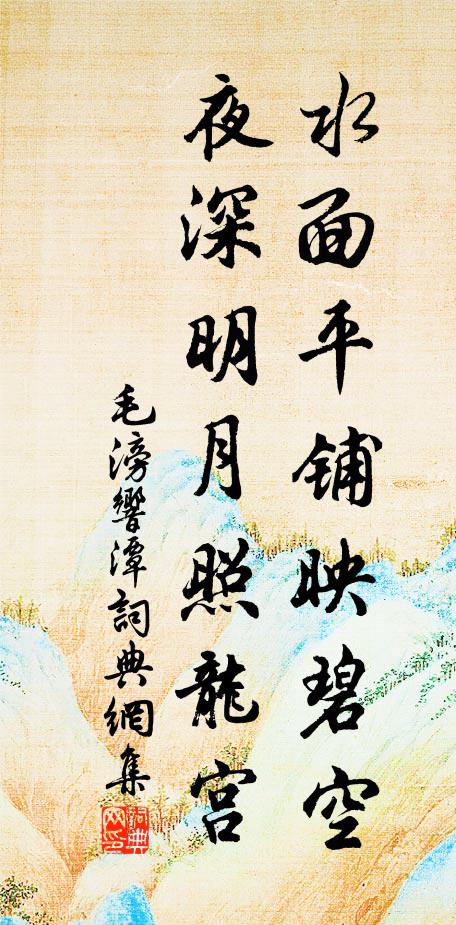 水面平铺映碧空
夜深明月照龍宮
毛滂響潭詞典網集
詞典